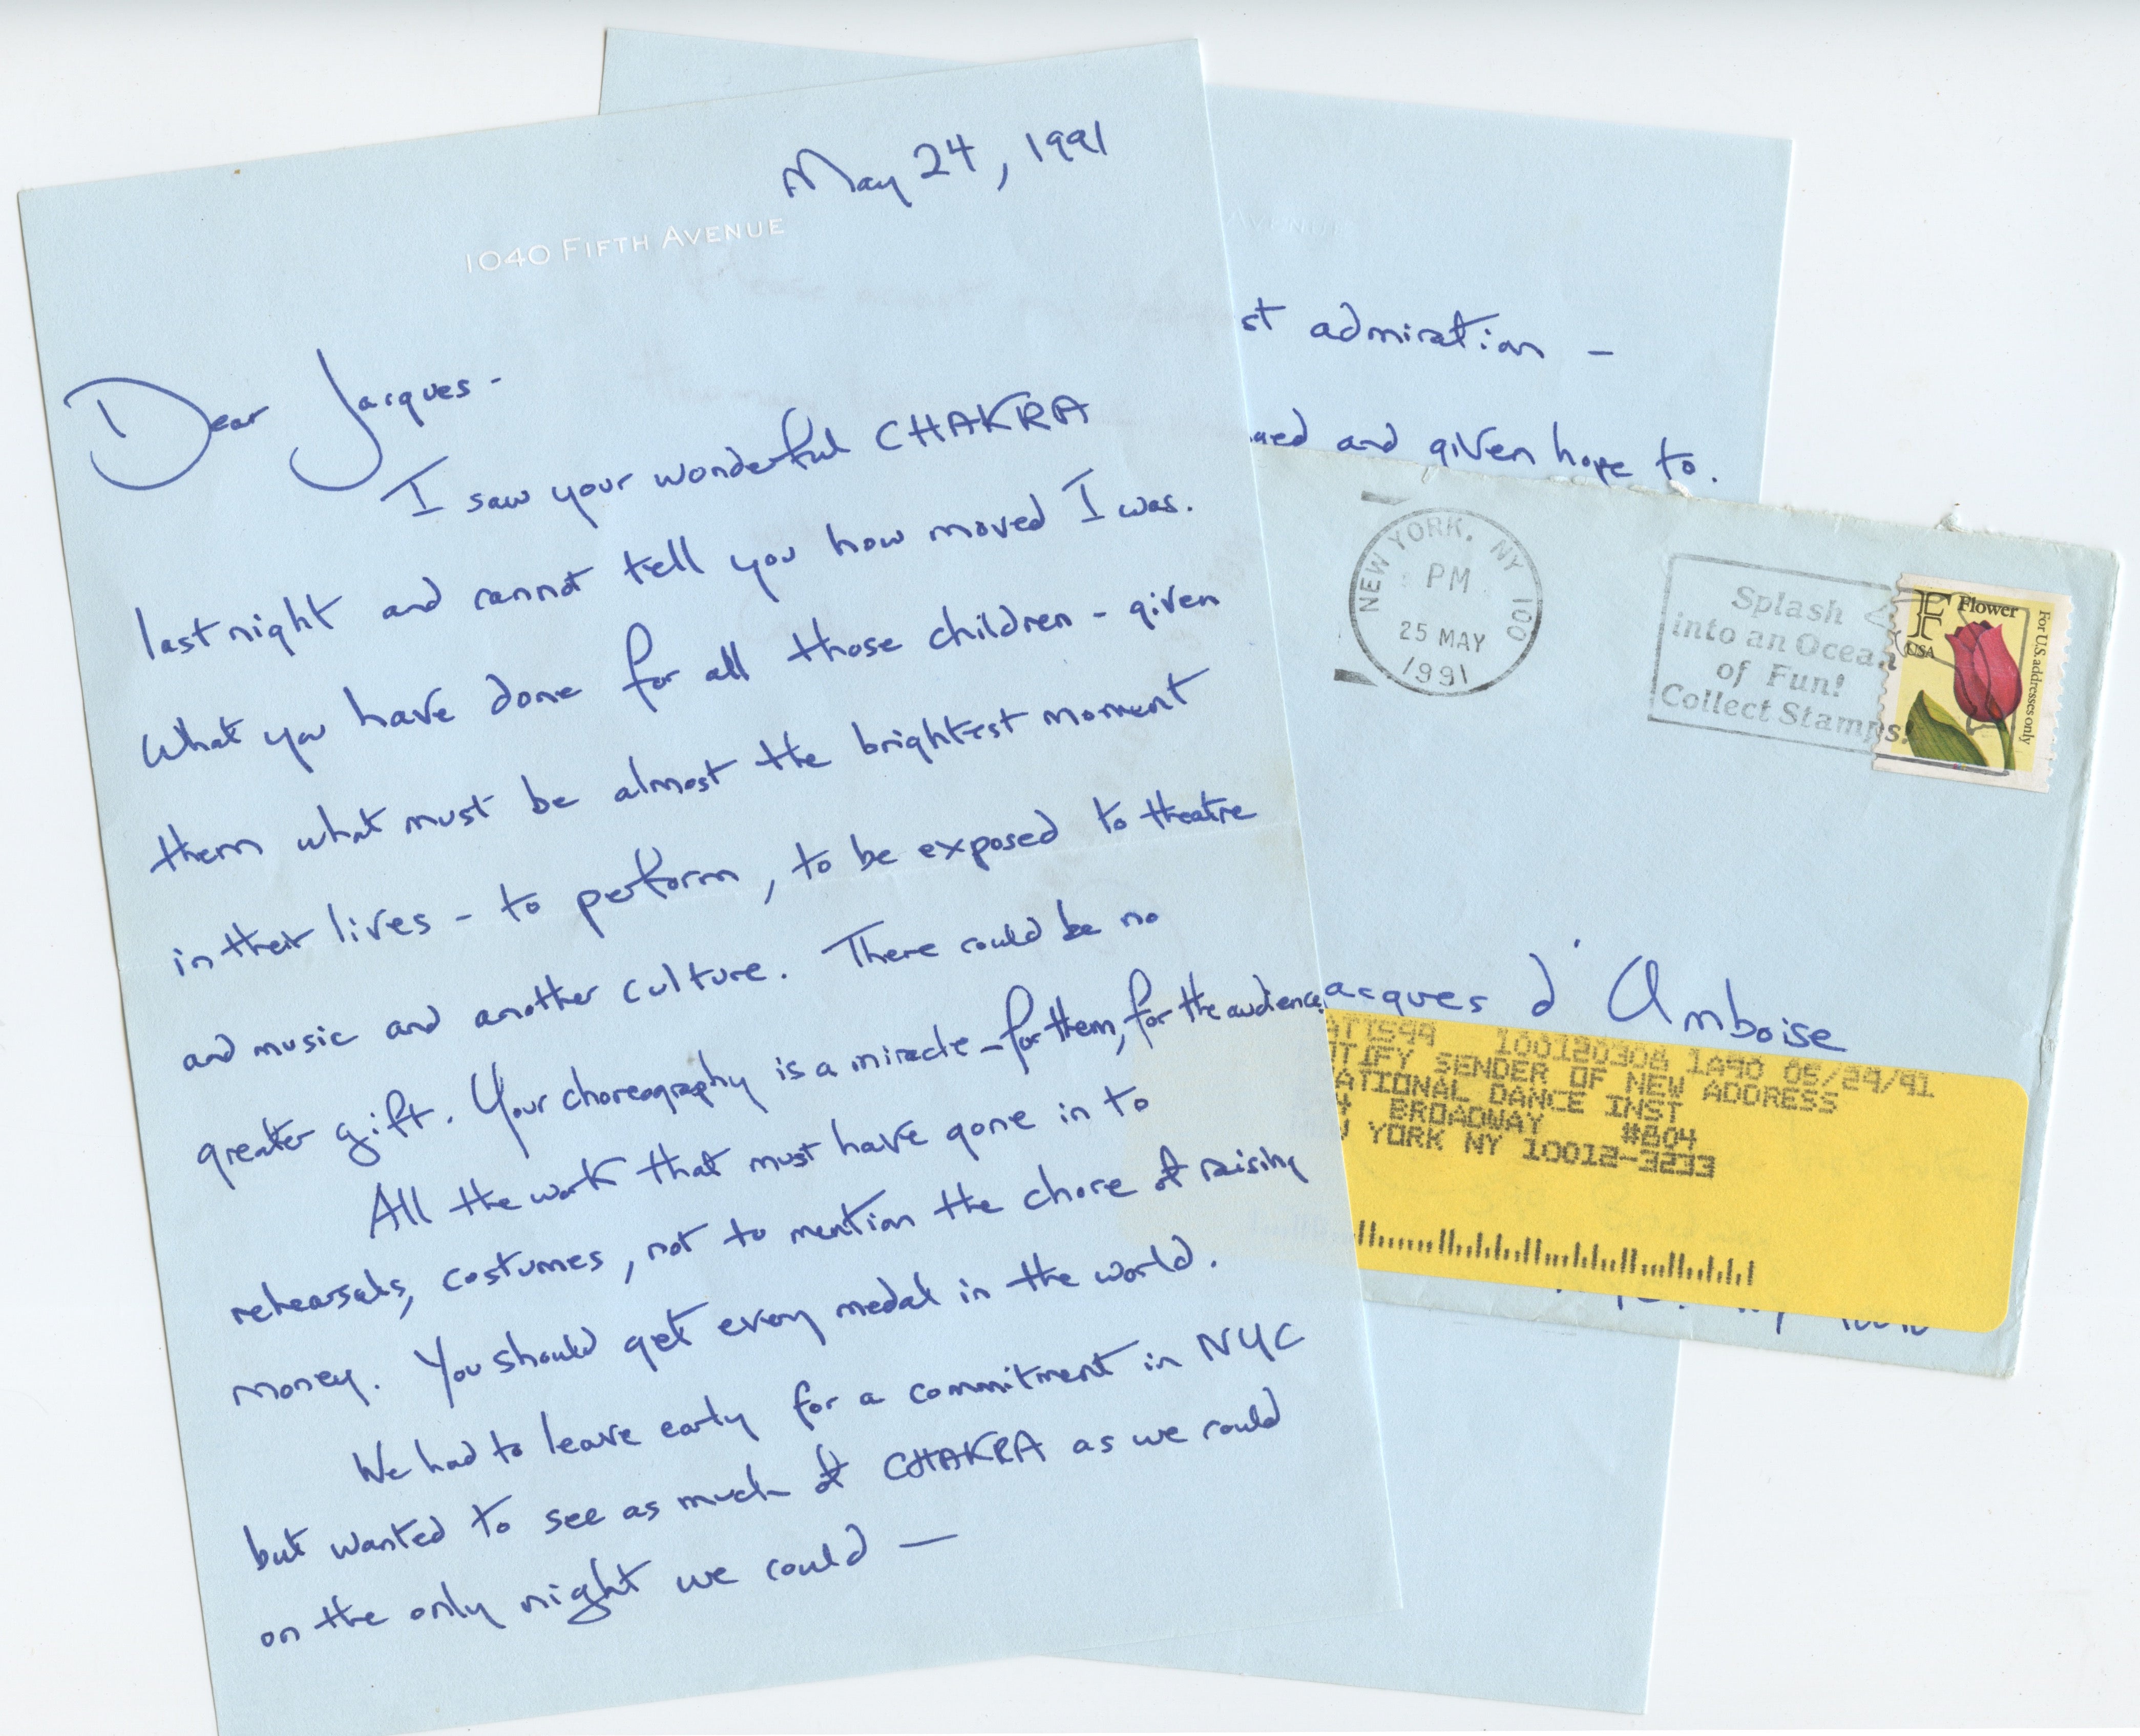 May 24, 1991
1040 FIFTH AVENUE
Dear Jacques -
I saw your wonderful CHAKRA
last night and cannot tell you how moved I was.
What you have done for all those children - given
them what must be almost the brightest moment
in their lives - to perform, to be exposed to theatre
and music and another culture. There could be no
greater gift. Your choreography is a miracle - for them, for the audience.
All the work that must have gone in to
rehearsals, costumes, not to mention the chore of raising
money. You should get every medal in the world.
We had to leave early for a commitment in NYC
but wanted to see as much of CHAKRA as we could
on the only night we could —
AVENUE
st admiration -
and given hope to.
NEW YORK, NY 100
PM
25 MAY
1991
Splash
into an Ocean
of Fun!
Collect Stamps.
F Flower
USA
For U.S. addresses only
acques d'Amboise
100120304 1A90 05/29/91
TIFY SENDER OF NEW ADDRESS
ATIONAL DANCE INST
BROADWAY #804
YORK NY 10012-3233